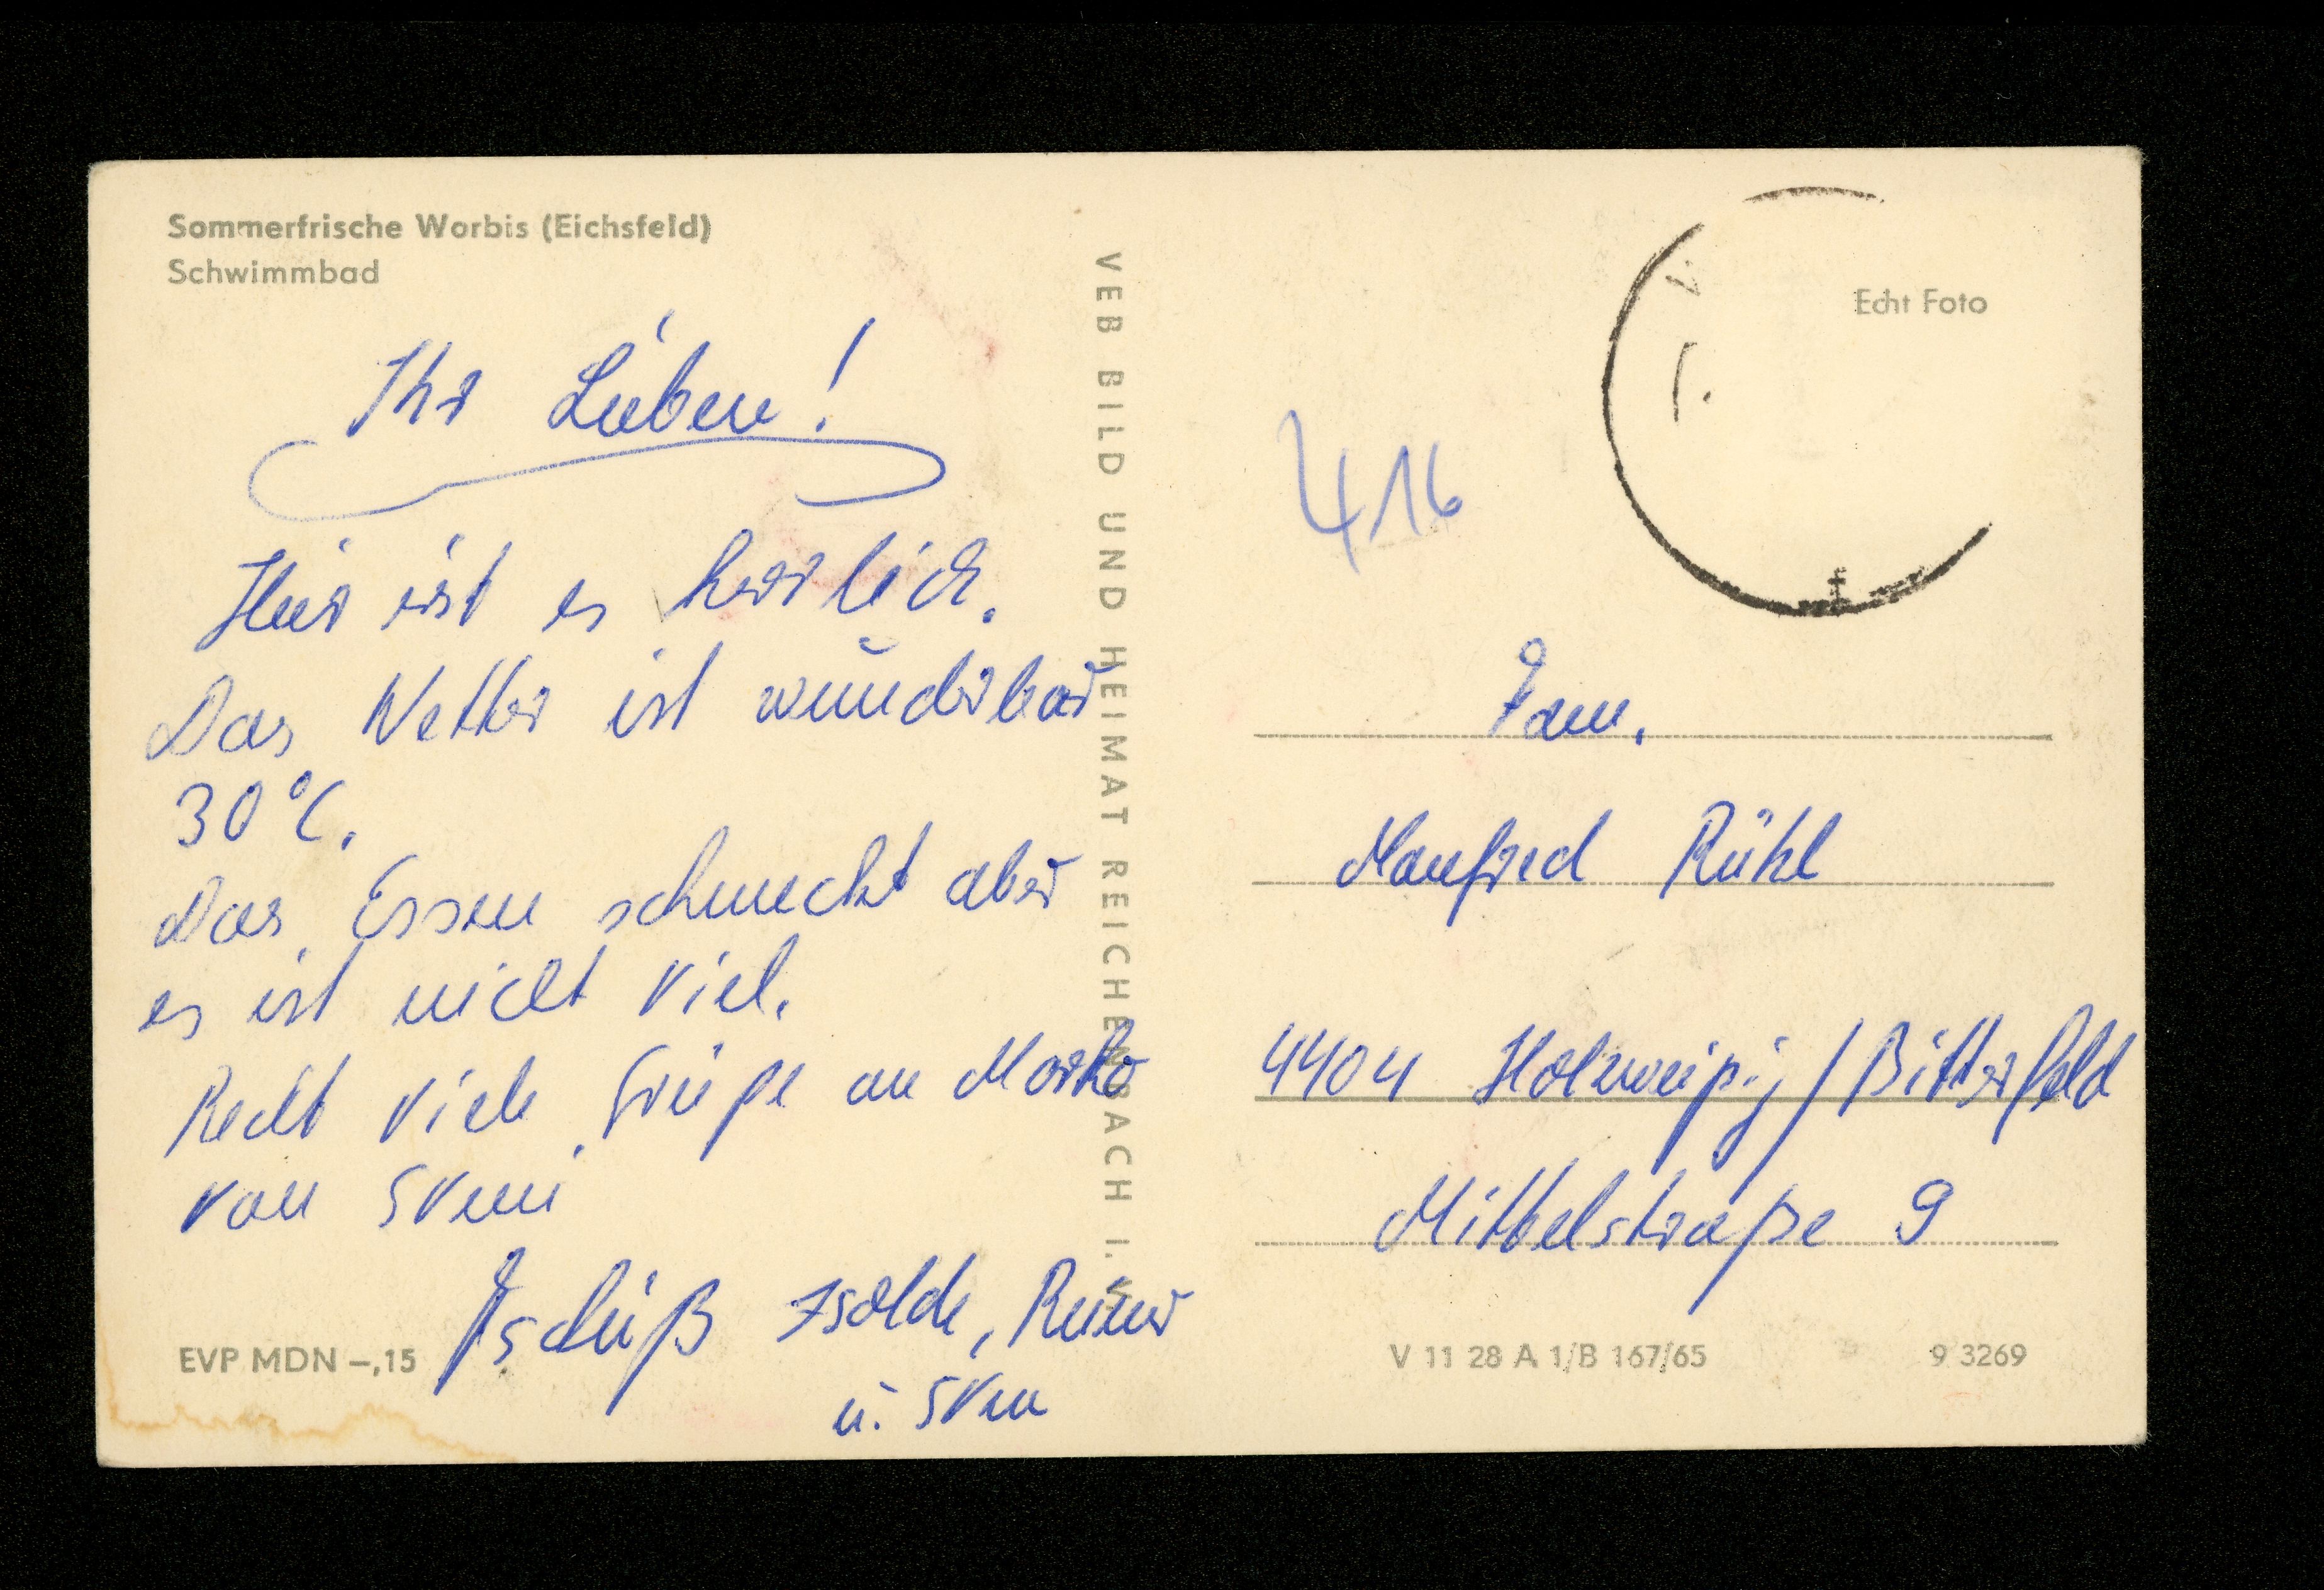 Sommerfrische Worbis (Eichsfeld)
Schwimmbad
Ihr Lieben!
Hier ist es herrlich.
Das Wetter ist wunderbar
30°C.
Das Essen schmeckt aber
es ist nicht viel.
Recht viele Grüße an Marko
von Sveni
Tschüß Isolde, Reiner
u. Sven
EVP MDN –,15
VEB BILD UND HEIMAT REICHENBACH I. V.
Echt Foto
416
Fam.
Manfred Rühl
4404 Holzweißig/Bitterfeld
Mittelstraße 9
V 11 28 A 1/B 167/65
9 3269